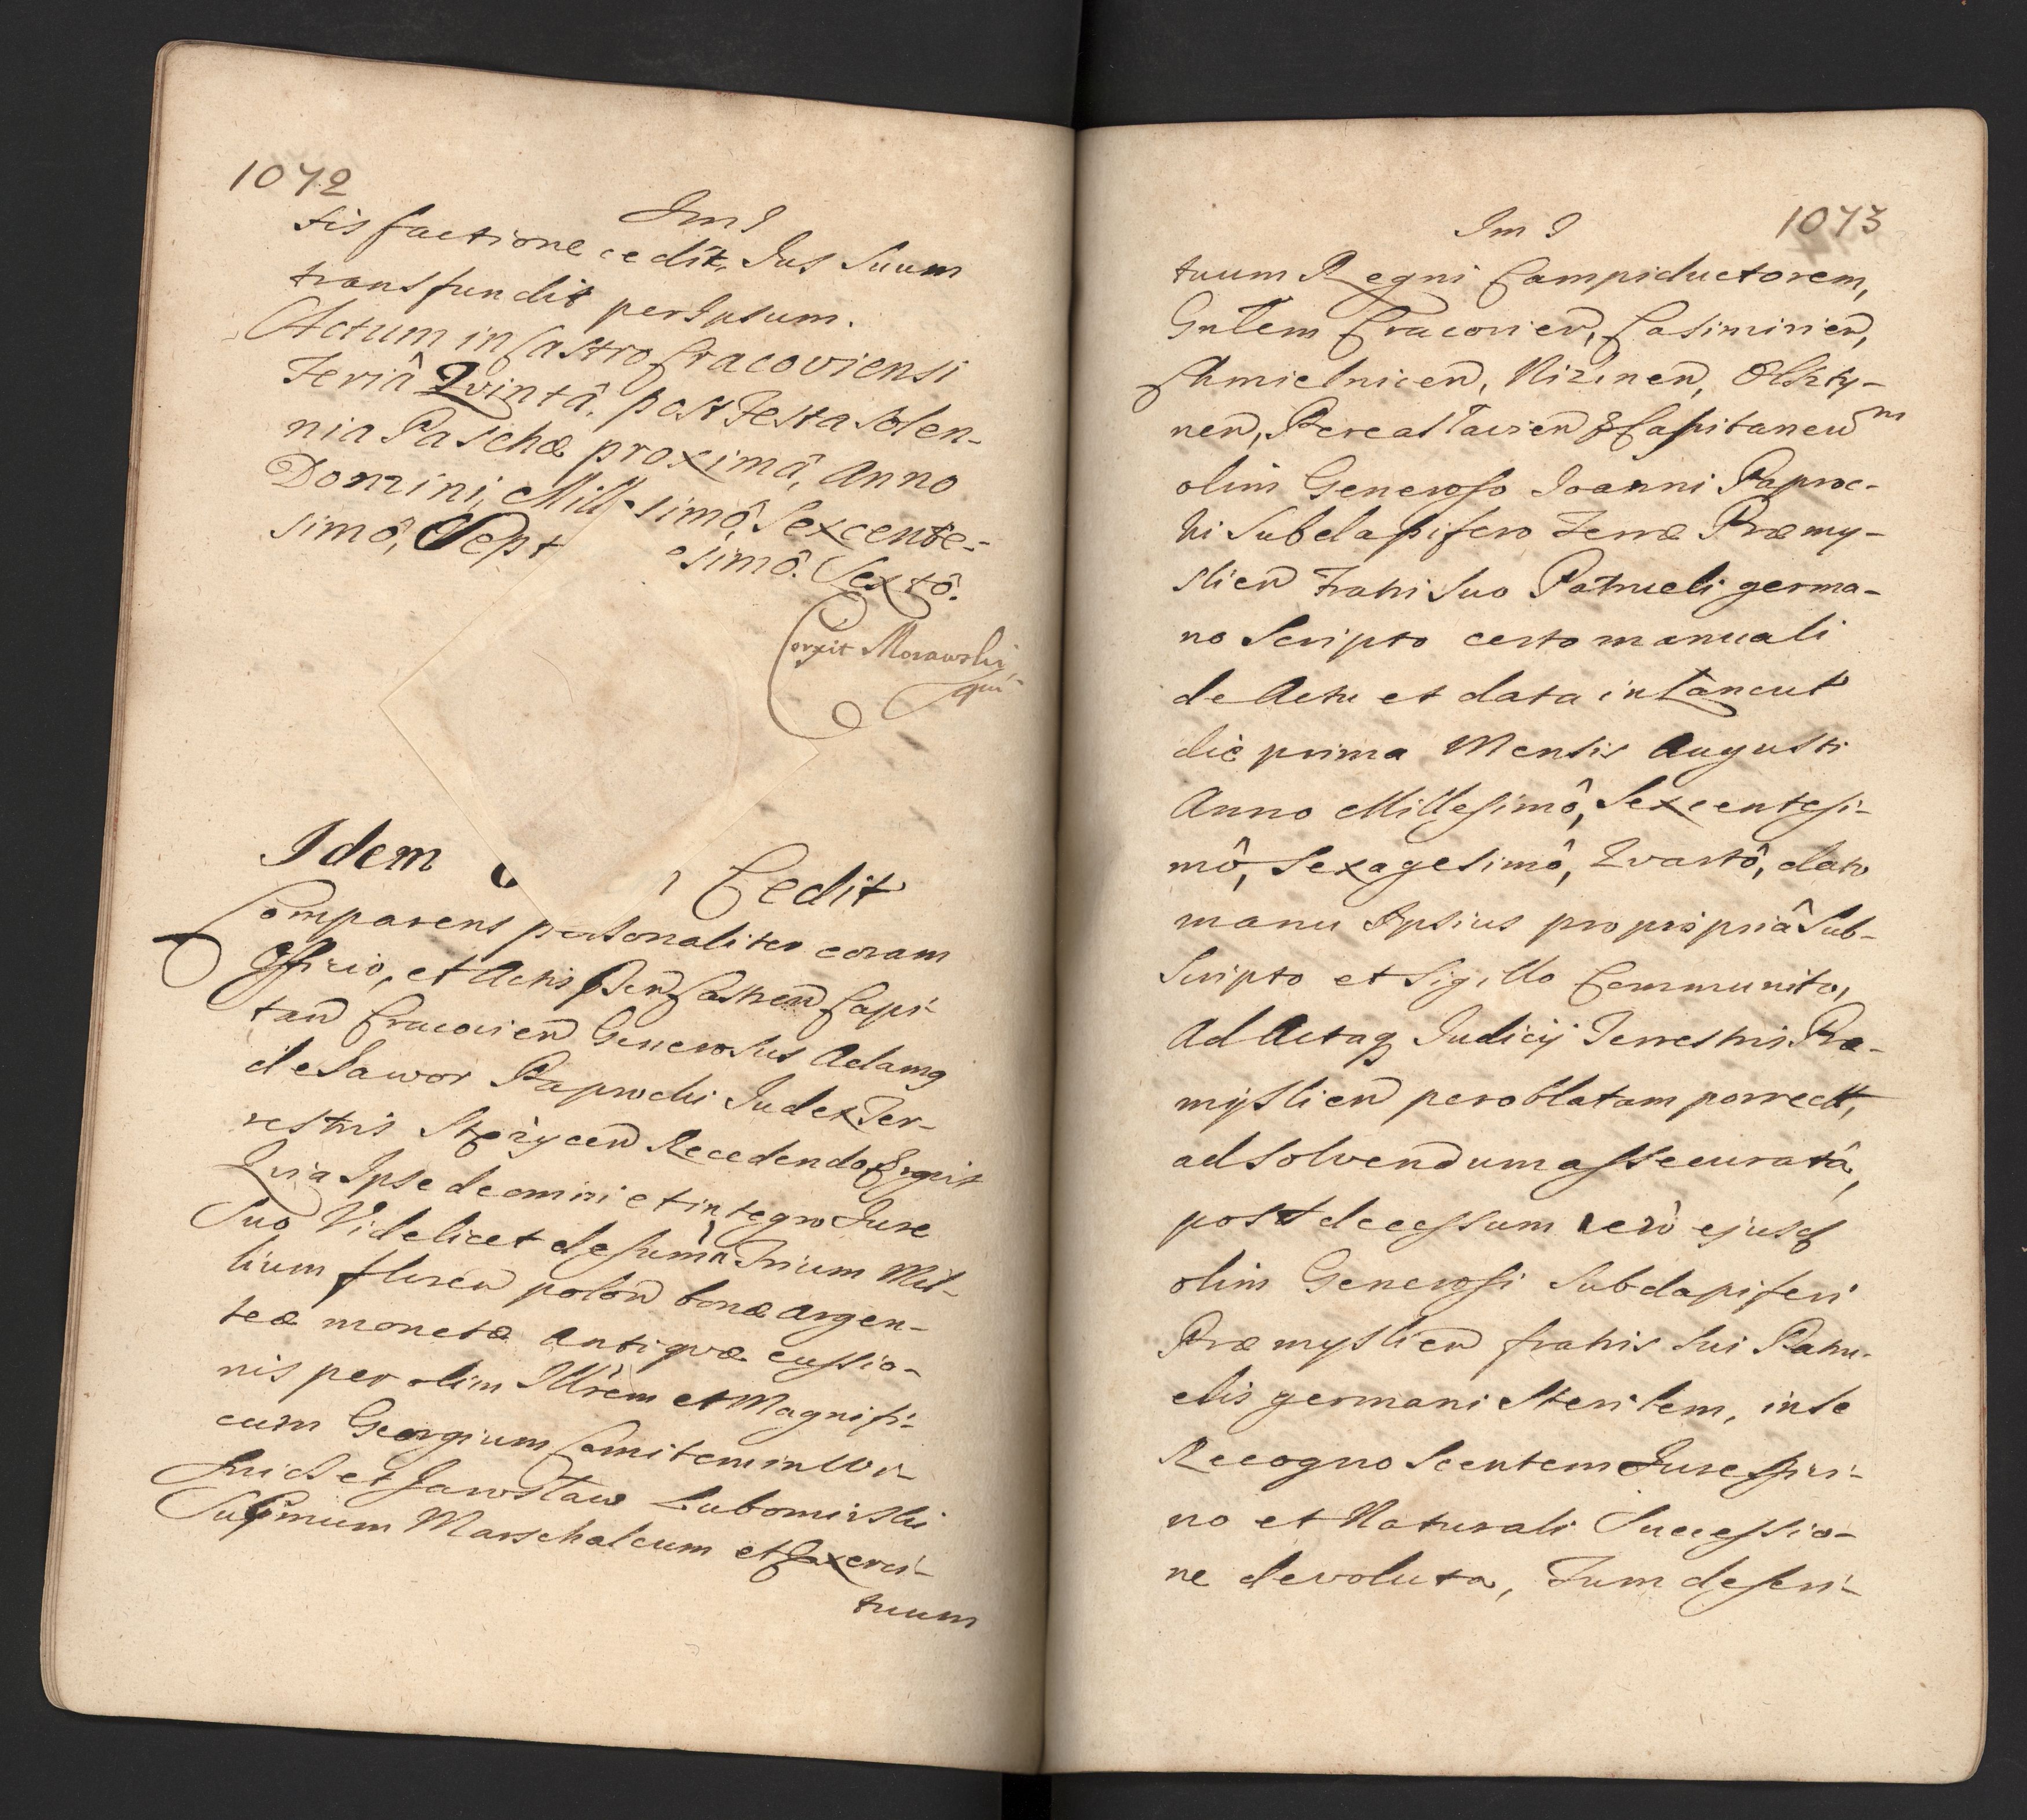 1072
Im I
tisfactione cedit, Jus Suum
transfundit per Ipsum.
Actum in Castro Cracoviensi
Feriâ Qvintâ. post Festa Solen-
nia Paschæ proximâ, Anno
Domini, Millesimô, Sexcente-
simô, Sept esimô. Sextô.
Corxit Morawski
Idem Cedit
Comparens personaliter coram
Officio, et Actis pñtibus Castreñ Capi-
tañ Cracovieñ Generosus Adamg
de Sawor Paprocki Judex Ter-
restris Stęzyceñ Recedendo
Qvia Ipse de omni et integro Jure
Suo Videlicet de sum̃a Trium Mil-
lium floreñ poloñ bonæ argen-
teæ monetæ antiqvæ cussio-
nis per olim Illrem et Magnifi-
cum Georgium Comitem in Wi-
snicz et Jarosław Lubomirski
Supremum Marschalcum et Exerci-
tuum
1073
Im I
tuum Regni Campiductorem,
Gñlem Cracovieñ, Casimirieñ,
Chmielniceñ, Niżineñ, Olszty-
neñ, Pereasławieñ & Capitaneũm
olim Generoso Joanni Paproc-
ki Subdapifero Terræ Præmy-
slieñ Fratri Suo Patrueli germa-
no Scripto certo manuali
de Actu et data in Łancut
die prima Mensis Augusti
Anno Millesimô, Sexcentesi-
mô, Sexagesimô, Qvartô, dato
manu Ipsius propripriâ Sub-
scripto et Sigillo Communito,
Ad Actaq Judicij Terrestris Præ-
myslieñ per oblatam porrect,
ad solvendum assecuratâ,
post decessum verò ejusd
olim Generosi Subdapiferi
Præmyslieñ fratris Sui Patru-
elis germani Sterilem, in se
Recognoscentem Jure Spiri-
no et Naturali Successio-
ne devoluta, Tum de seri-